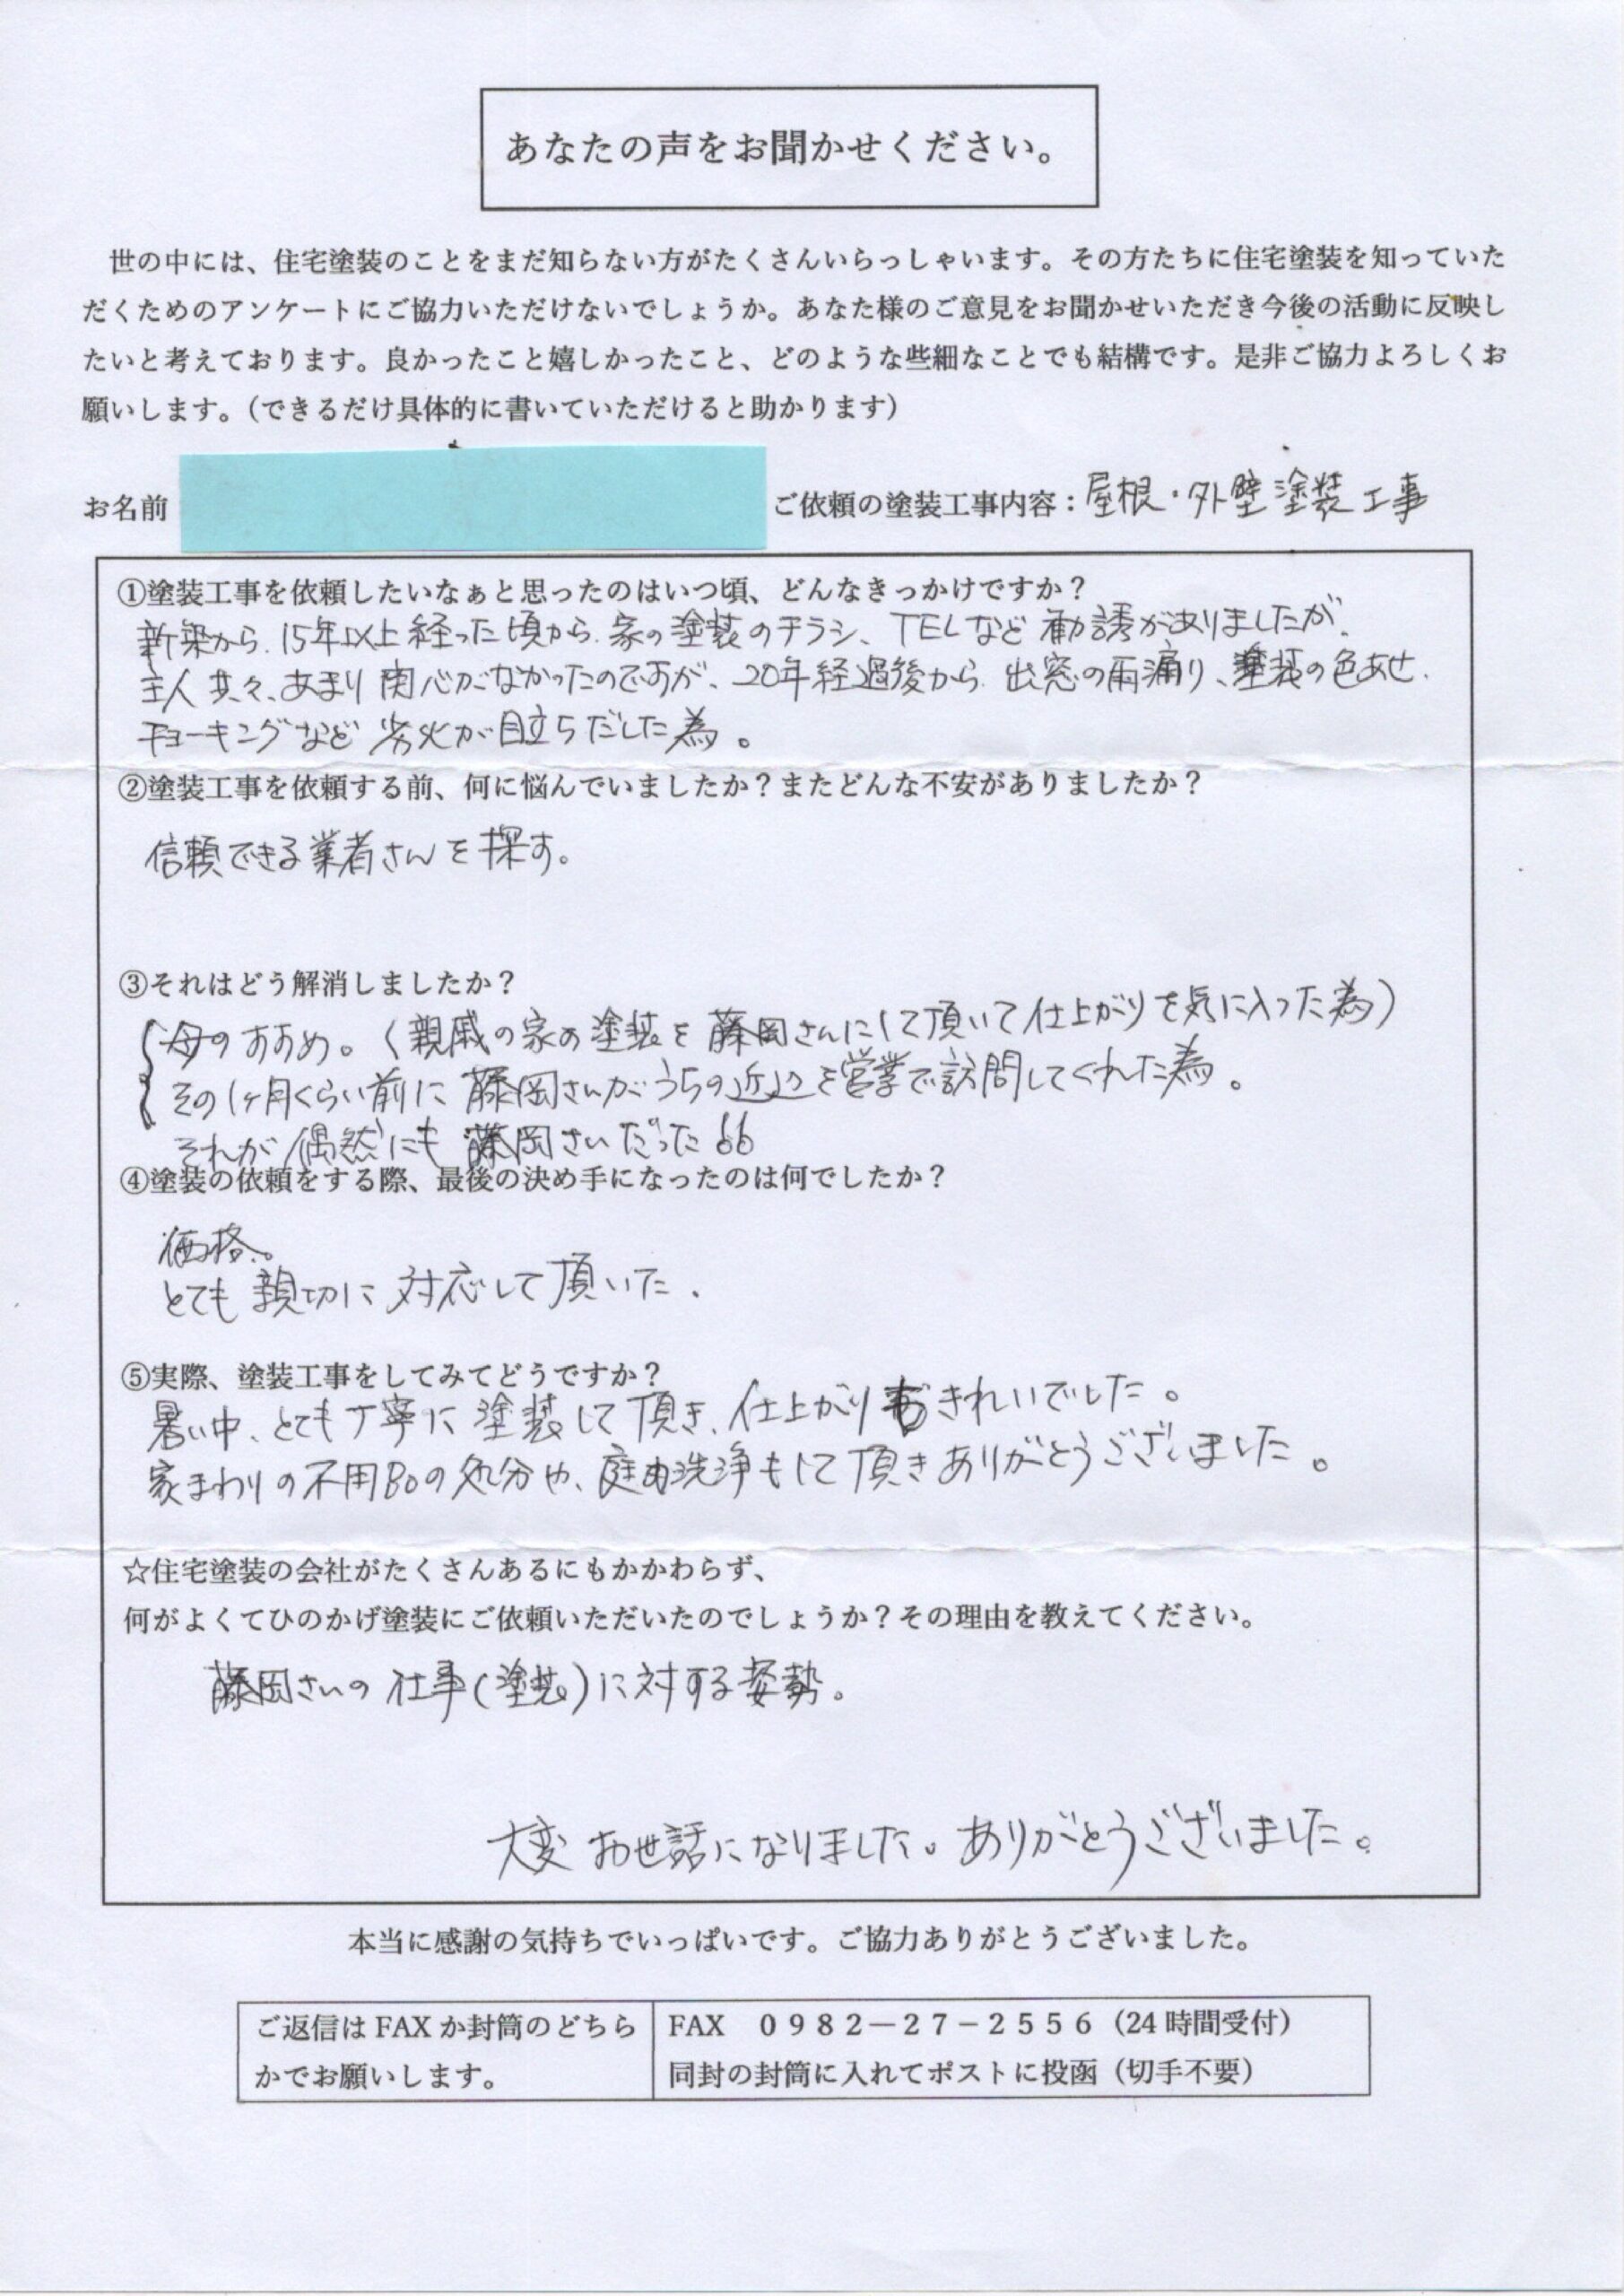 あなたの声をお聞かせください。
世の中には、住宅塗装のことをまだ知らない方がたくさんいらっしゃいます。その方たちに住宅塗装を知っていた
だくためのアンケートにご協力いただけないでしょうか。あなた様のご意見をお聞かせいただき今後の活動に反映し
たいと考えております。良かったこと嬉しかったこと、どのような些細なことでも結構です。是非ご協力よろしくお
願いします。（できるだけ具体的に書いていただけると助かります）
お名前 ご依頼の塗装工事内容：屋根・外壁塗装工事
①塗装工事を依頼したいなぁと思ったのはいつ頃、どんなきっかけですか？
新築から、15年以上経った頃から、家の塗装のチラシ、TELなど勧誘がありましたが、
主人共々、あまり関心がなかったのですが、20年経過後から、出窓の雨漏り、塗装の色あせ、
チョーキングなど劣化が目立ちだした為。
②塗装工事を依頼する前、何に悩んでいましたか？またどんな不安がありましたか？
信頼できる業者さんを探す。
③それはどう解消しましたか？
母のすすめ。（親戚の家の塗装を藤岡さんにして頂いて仕上がりを気に入った為）
その1ヶ月くらい前に藤岡さんがうちの近辺を営業で訪問してくれた為。
それが偶然にも藤岡さんだった
④塗装の依頼をする際、最後の決め手になったのは何でしたか？
価格。
とても親切に対応して頂いた。
⑤実際、塗装工事をしてみてどうですか？
暑い中、とても丁寧に塗装して頂き、仕上がりもきれいでした。
家まわりの不用品の処分や、庭の洗浄もして頂きありがとうございました。
☆住宅塗装の会社がたくさんあるにもかかわらず、
何がよくてひのかげ塗装にご依頼いただいたのでしょうか？その理由を教えてください。
藤岡さんの仕事（塗装）に対する姿勢。
大変お世話になりました。ありがとうございました。
本当に感謝の気持ちでいっぱいです。ご協力ありがとうございました。
ご返信は FAX か封筒のどちら
かでお願いします。
FAX ０９８２－２７－２５５６（24 時間受付）
同封の封筒に入れてポストに投函（切手不要）